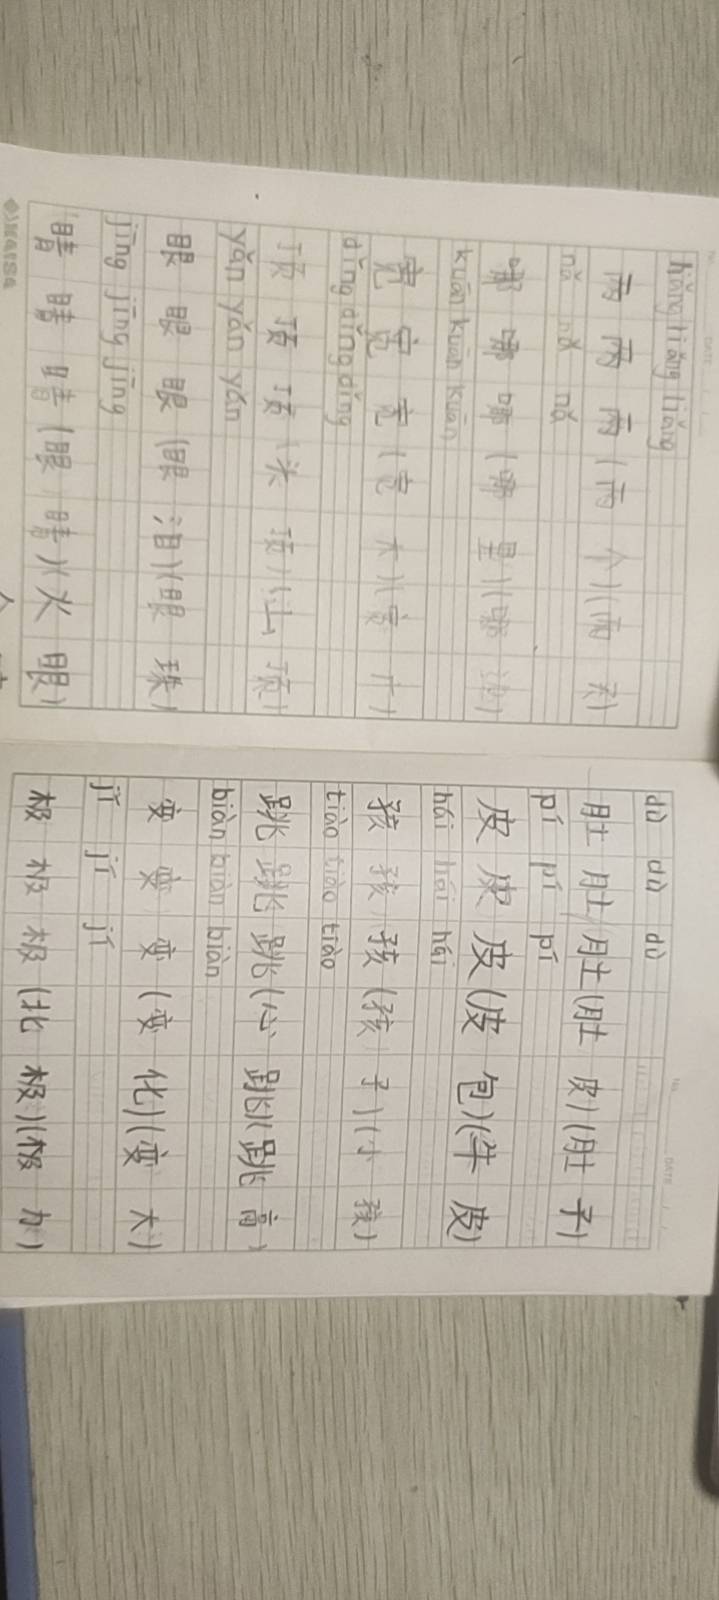 liǎng liǎng liǎng
两 两 两 (两 个)(两 天)
nǎ nǎ nǎ
哪 哪 哪 (哪 里)(哪
kuān kuān kuān
宽 宽 宽 (宽 大)(宽 广)
dǐng dǐng dǐng
顶 顶 顶 (头 顶)(山 顶)
yǎn yǎn yǎn
眼 眼 眼 (眼 泪)(眼 珠)
jīng jīng jīng
睛 睛 睛 (眼 睛)(火 眼)
dù dù dù
肚 肚 肚 (肚 皮)(肚 子)
pí pí pí
皮 皮 皮 (皮 包)(牛 皮)
hái hái hái
孩 孩 孩 (孩 子)(小 孩)
tiào tiào tiào
跳 跳 跳 (心 跳)(跳 高)
biàn biàn biàn
变 变 变 (变 化)(变 大)
jí jí jí
极 极 极 (北 极)(极 力)
DATE